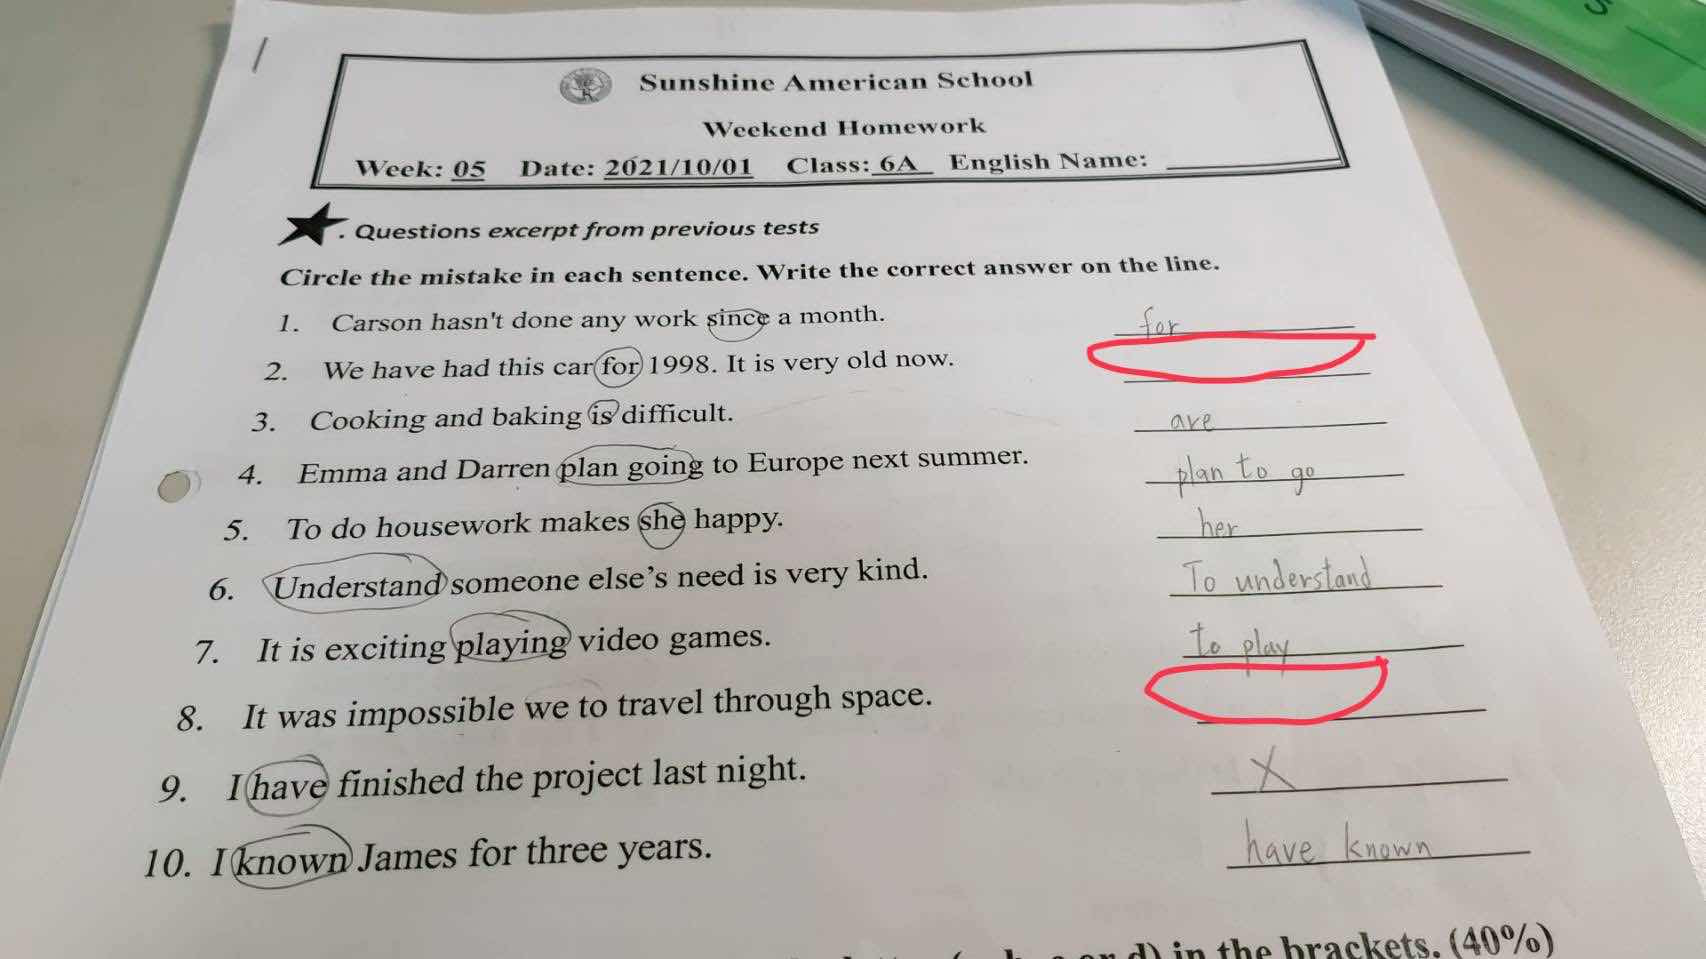 Sunshine American School
Weekend Homework
Week: 05 Date: 2021/10/01 Class: 6A English Name:
. Questions excerpt from previous tests
Circle the mistake in each sentence. Write the correct answer on the line.
1. Carson hasn't done any work since a month. for
2. We have had this car for 1998. It is very old now.
3. Cooking and baking is difficult. are
4. Emma and Darren plan going to Europe next summer. plan to go
5. To do housework makes she happy. her
6. Understand someone else's need is very kind. To understand
7. It is exciting playing video games. to play
8. It was impossible we to travel through space.
9. I have finished the project last night. X
10. I known James for three years. have known
in the brackets. (40%)